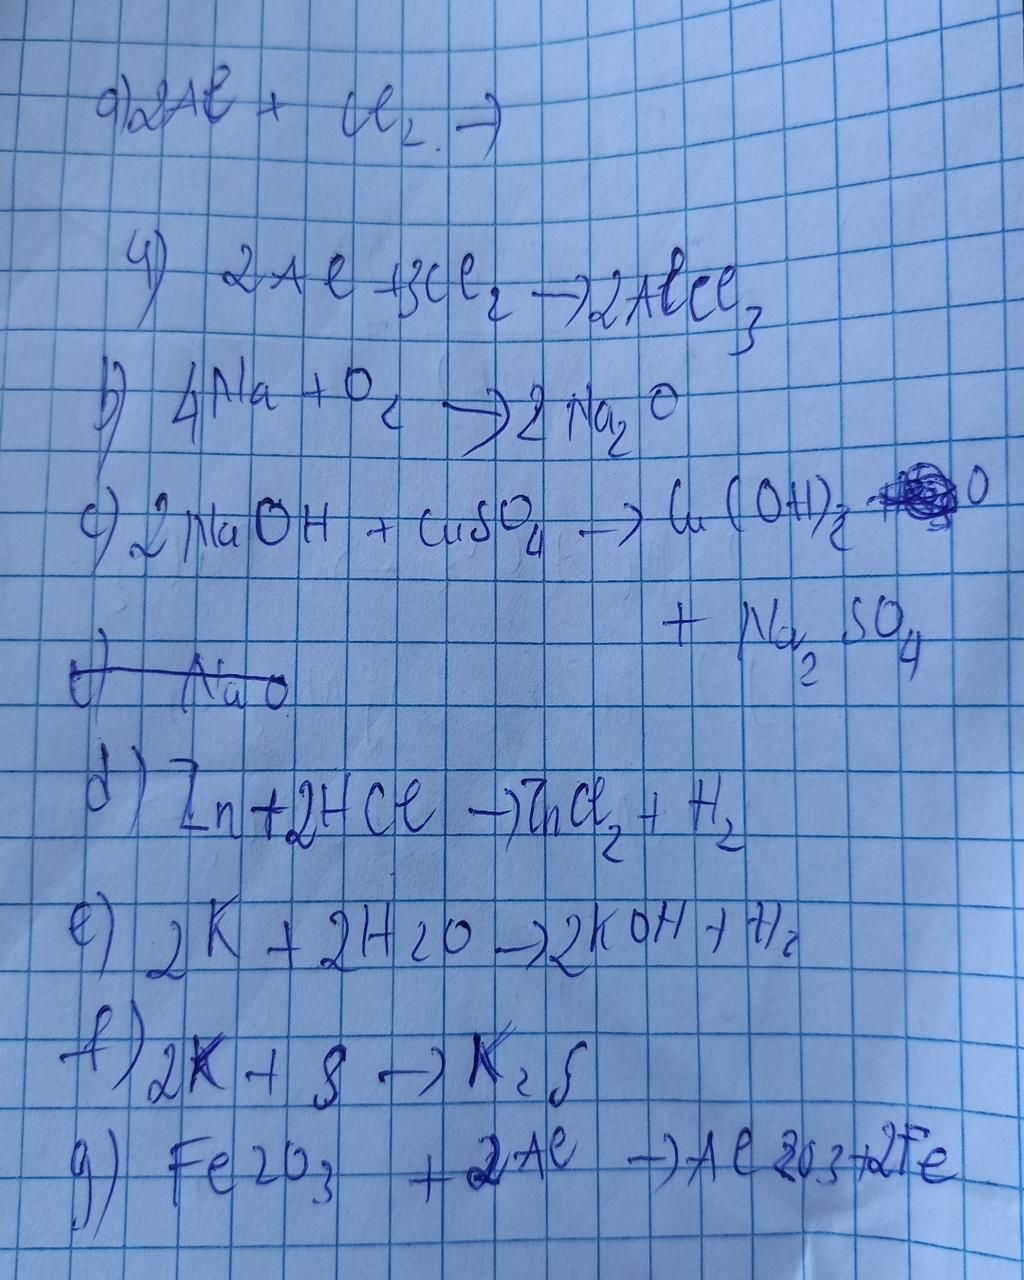 a) 2Al + Cl₂ →
a) 2Al + 3Cl₂ → 2AlCl₃
b) 4Na + O₂ → 2Na₂O
c) 2NaOH + CuSO₄ → Cu(OH)₂ O
+ Na₂SO₄
c) NaO
d) Zn + 2HCl → ZnCl₂ + H₂
e) 2K + 2H2O → 2KOH + H₂
f) 2K + S → K₂S
g) Fe2O₃ + 2Al → Al2O₃ + 2Fe